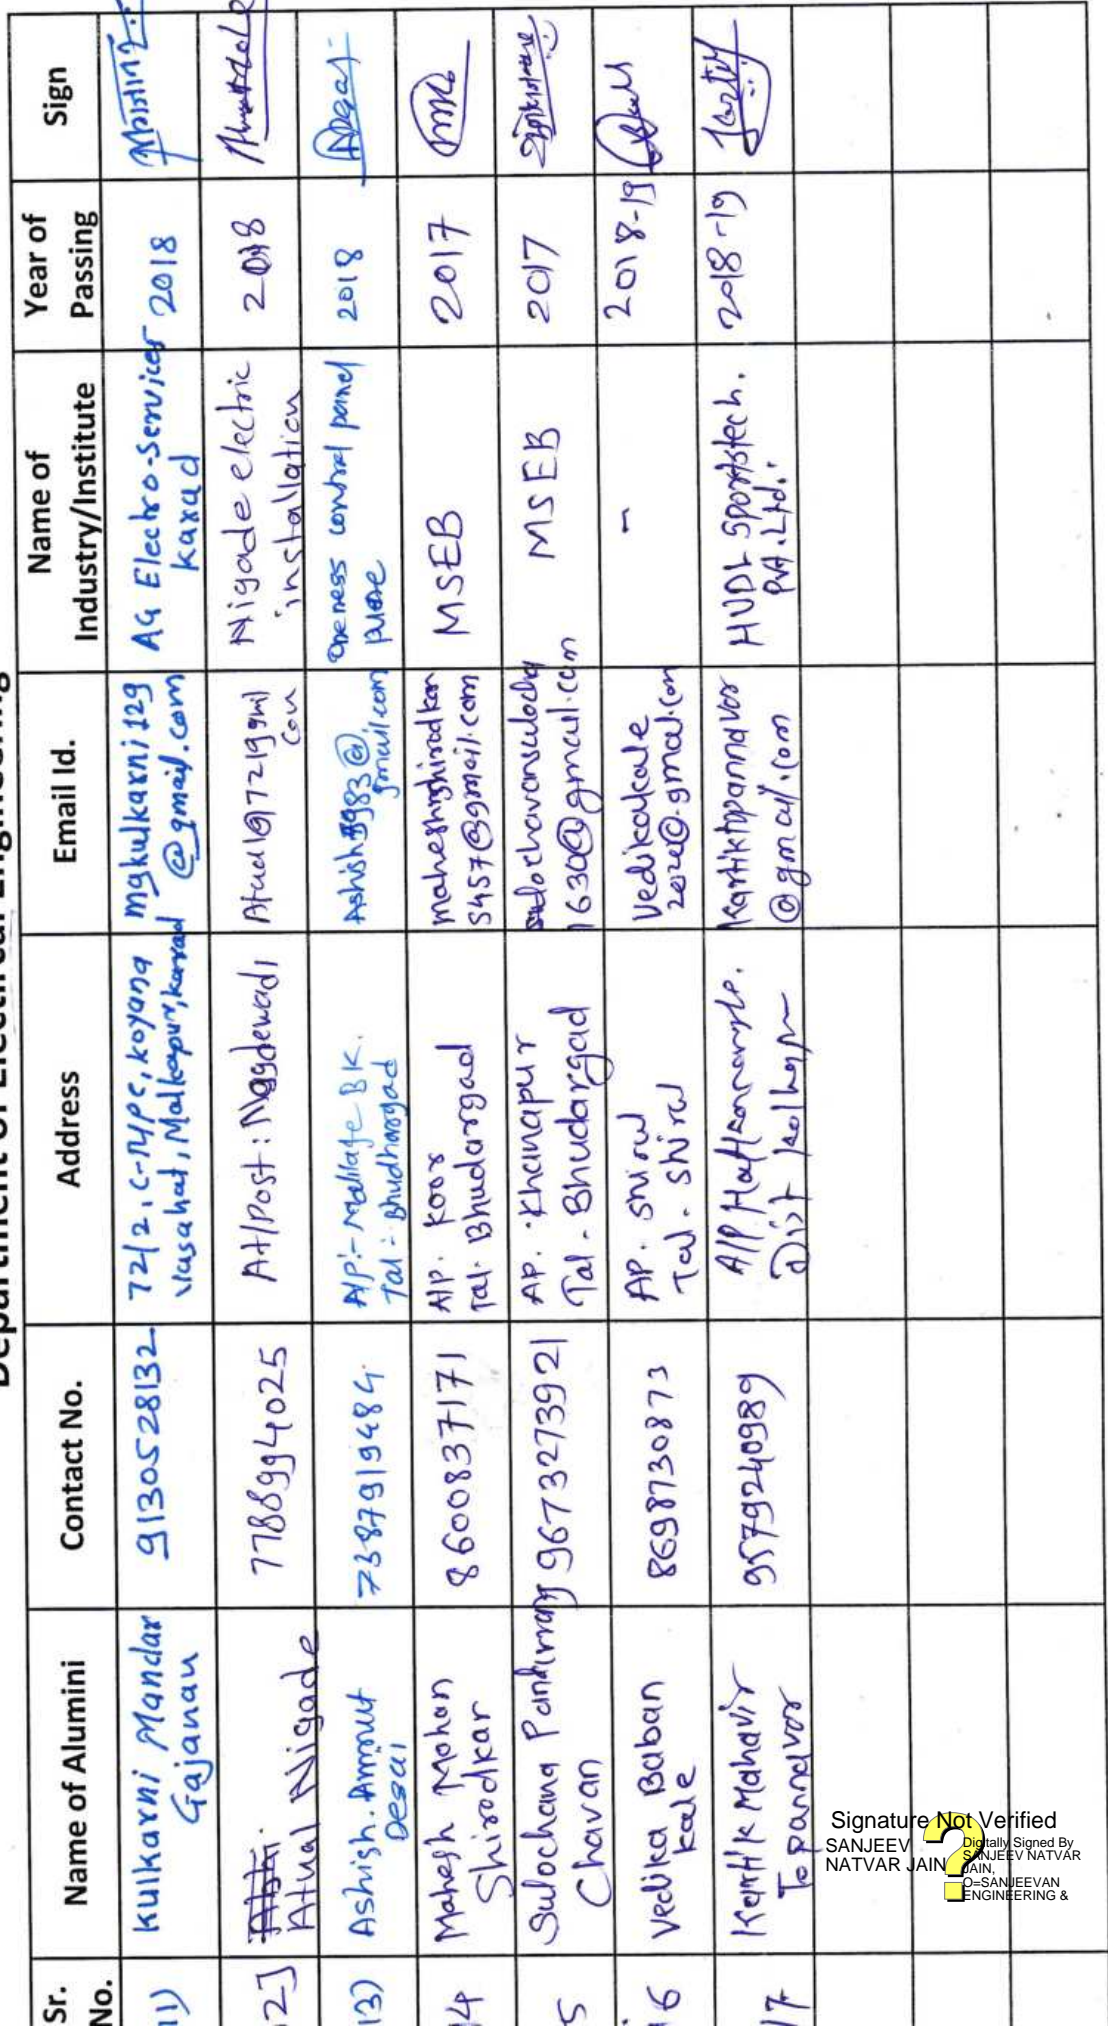 Department of Electrical Engineering
Sr. No.
Name of Alumini
Contact No.
Address
Email Id.
Name of Industry/Institute
Year of Passing
Sign
11)
Kulkarni Mandar
Gajanan
9130528132
72/2, C-14/PC, Koyana
Vasahat, Malkapur, Karad
mgkulkarni129
@gmail.com
AG Electro-Services
Karad
2018
12]
Atual Nigade
7788994025
At/Post:
Nigade electric
installation
2018
13)
Ashish. Amrut
Desai
7387919484
A/p:- BK.
Tal:- Bhudhargad
gmail.com
Oneness control panel
2018
14
Mahesh Mohan
Shirodkar
8600837171
A/P. Koor
Tal. Bhudargad
maheshshirodkar
5457@gmail.com
MSEB
2017
5
Sulochana Pandurang
Chavan
9673273921
AP. Khanapur
Tal - Bhudargad
sulochavansulochy
1630@gmail.com
MSEB
2017
16
Vedika Baban
Kale
8698730873
AP. Shiral
Tal - Shiral
Vedikakale
@gmal.com
-
2018-19
17
Kartik Mahavir
Topannavar
9579240989
A/P
Dist Kolhapur
Kartiktopannavar
@gmail.com
HUDL Sportstech.
Pvt. Ltd.
2018-19
Signature Not Verified
SANJEEV
NATVAR JAIN
Digitally Signed By
SANJEEV NATVAR
JAIN,
O=SANJEEVAN
ENGINEERING &